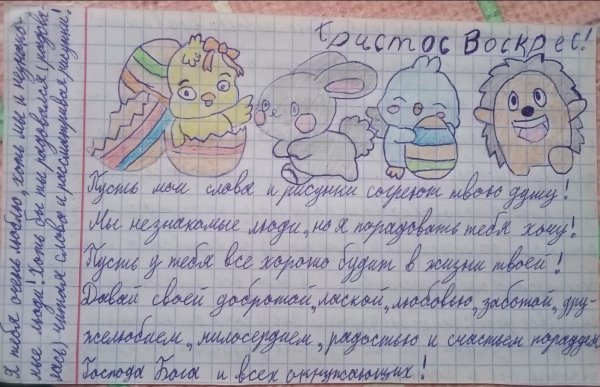 Христос Воскрес!
Пусть мои слова и рисунки согреют твою душу!
Мы незнакомые люди, но я порадовать тебя хочу!
Пусть у тебя все хорошо будит в жизни твоей!
Давай своей добротой, лаской, любовью, заботой, дру-
желюбием, милосердием, радостью и счастьем порадуем
Господа Бога и всех окружающих!
Я тебя очень люблю, хоть мы и незнако-
мые люди! Хоть бы ты порадовался (радова-
лась) читая слова и рассматривая рисунки!